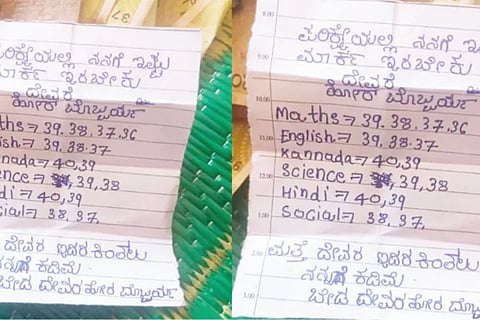 ರಿಕ್ಷೆಯಲ್ಲಿ ನನಗೆ ಇಷ್ಟು
ಮಾರ್ಕ ಇರಬೇಕು
ದೇವರೆ
ಹೋರ್ ಬೊಬ್ಬರ್ಯ
ths = 39, 38, 37, 36
lish = 39, 38, 37
nada = 40, 39
ence = 39, 38
di = 40, 39
cial = 38, 37,
ದೇವರ ಇದರ ಕಿಂತಲು
ನನ್ನಗೆ ಕಡಿಮೆ
ಬೇಡ ದೇವರ ಹೋರ ಬೊಬ್ಬರ್ಯ
8.00
ಪರಿಕ್ಷೆಯಲ್ಲಿ ನನಗೆ
ಮಾರ್ಕ ಇರಬೇಕು
ದೇವರೆ
10.00 ಹೋರ್ ಬೊಬ್ಬರ್ಯ
Maths = 39, 38, 37, 36
11.00 English = 39, 38, 37
Kannada = 40, 39
12.00 Science = 39, 38
Hindi = 40, 39
1.00 Social = 38, 37,
2.00 ಮತ್ತೆ ದೇವರ ಇದರ ಕಿಂತಲು
ನನ್ನಗೆ ಕಡಿಮೆ
3.00 ಬೇಡ ದೇವರ ಹೋರ ಬೊಬ್ಬರ್ಯ